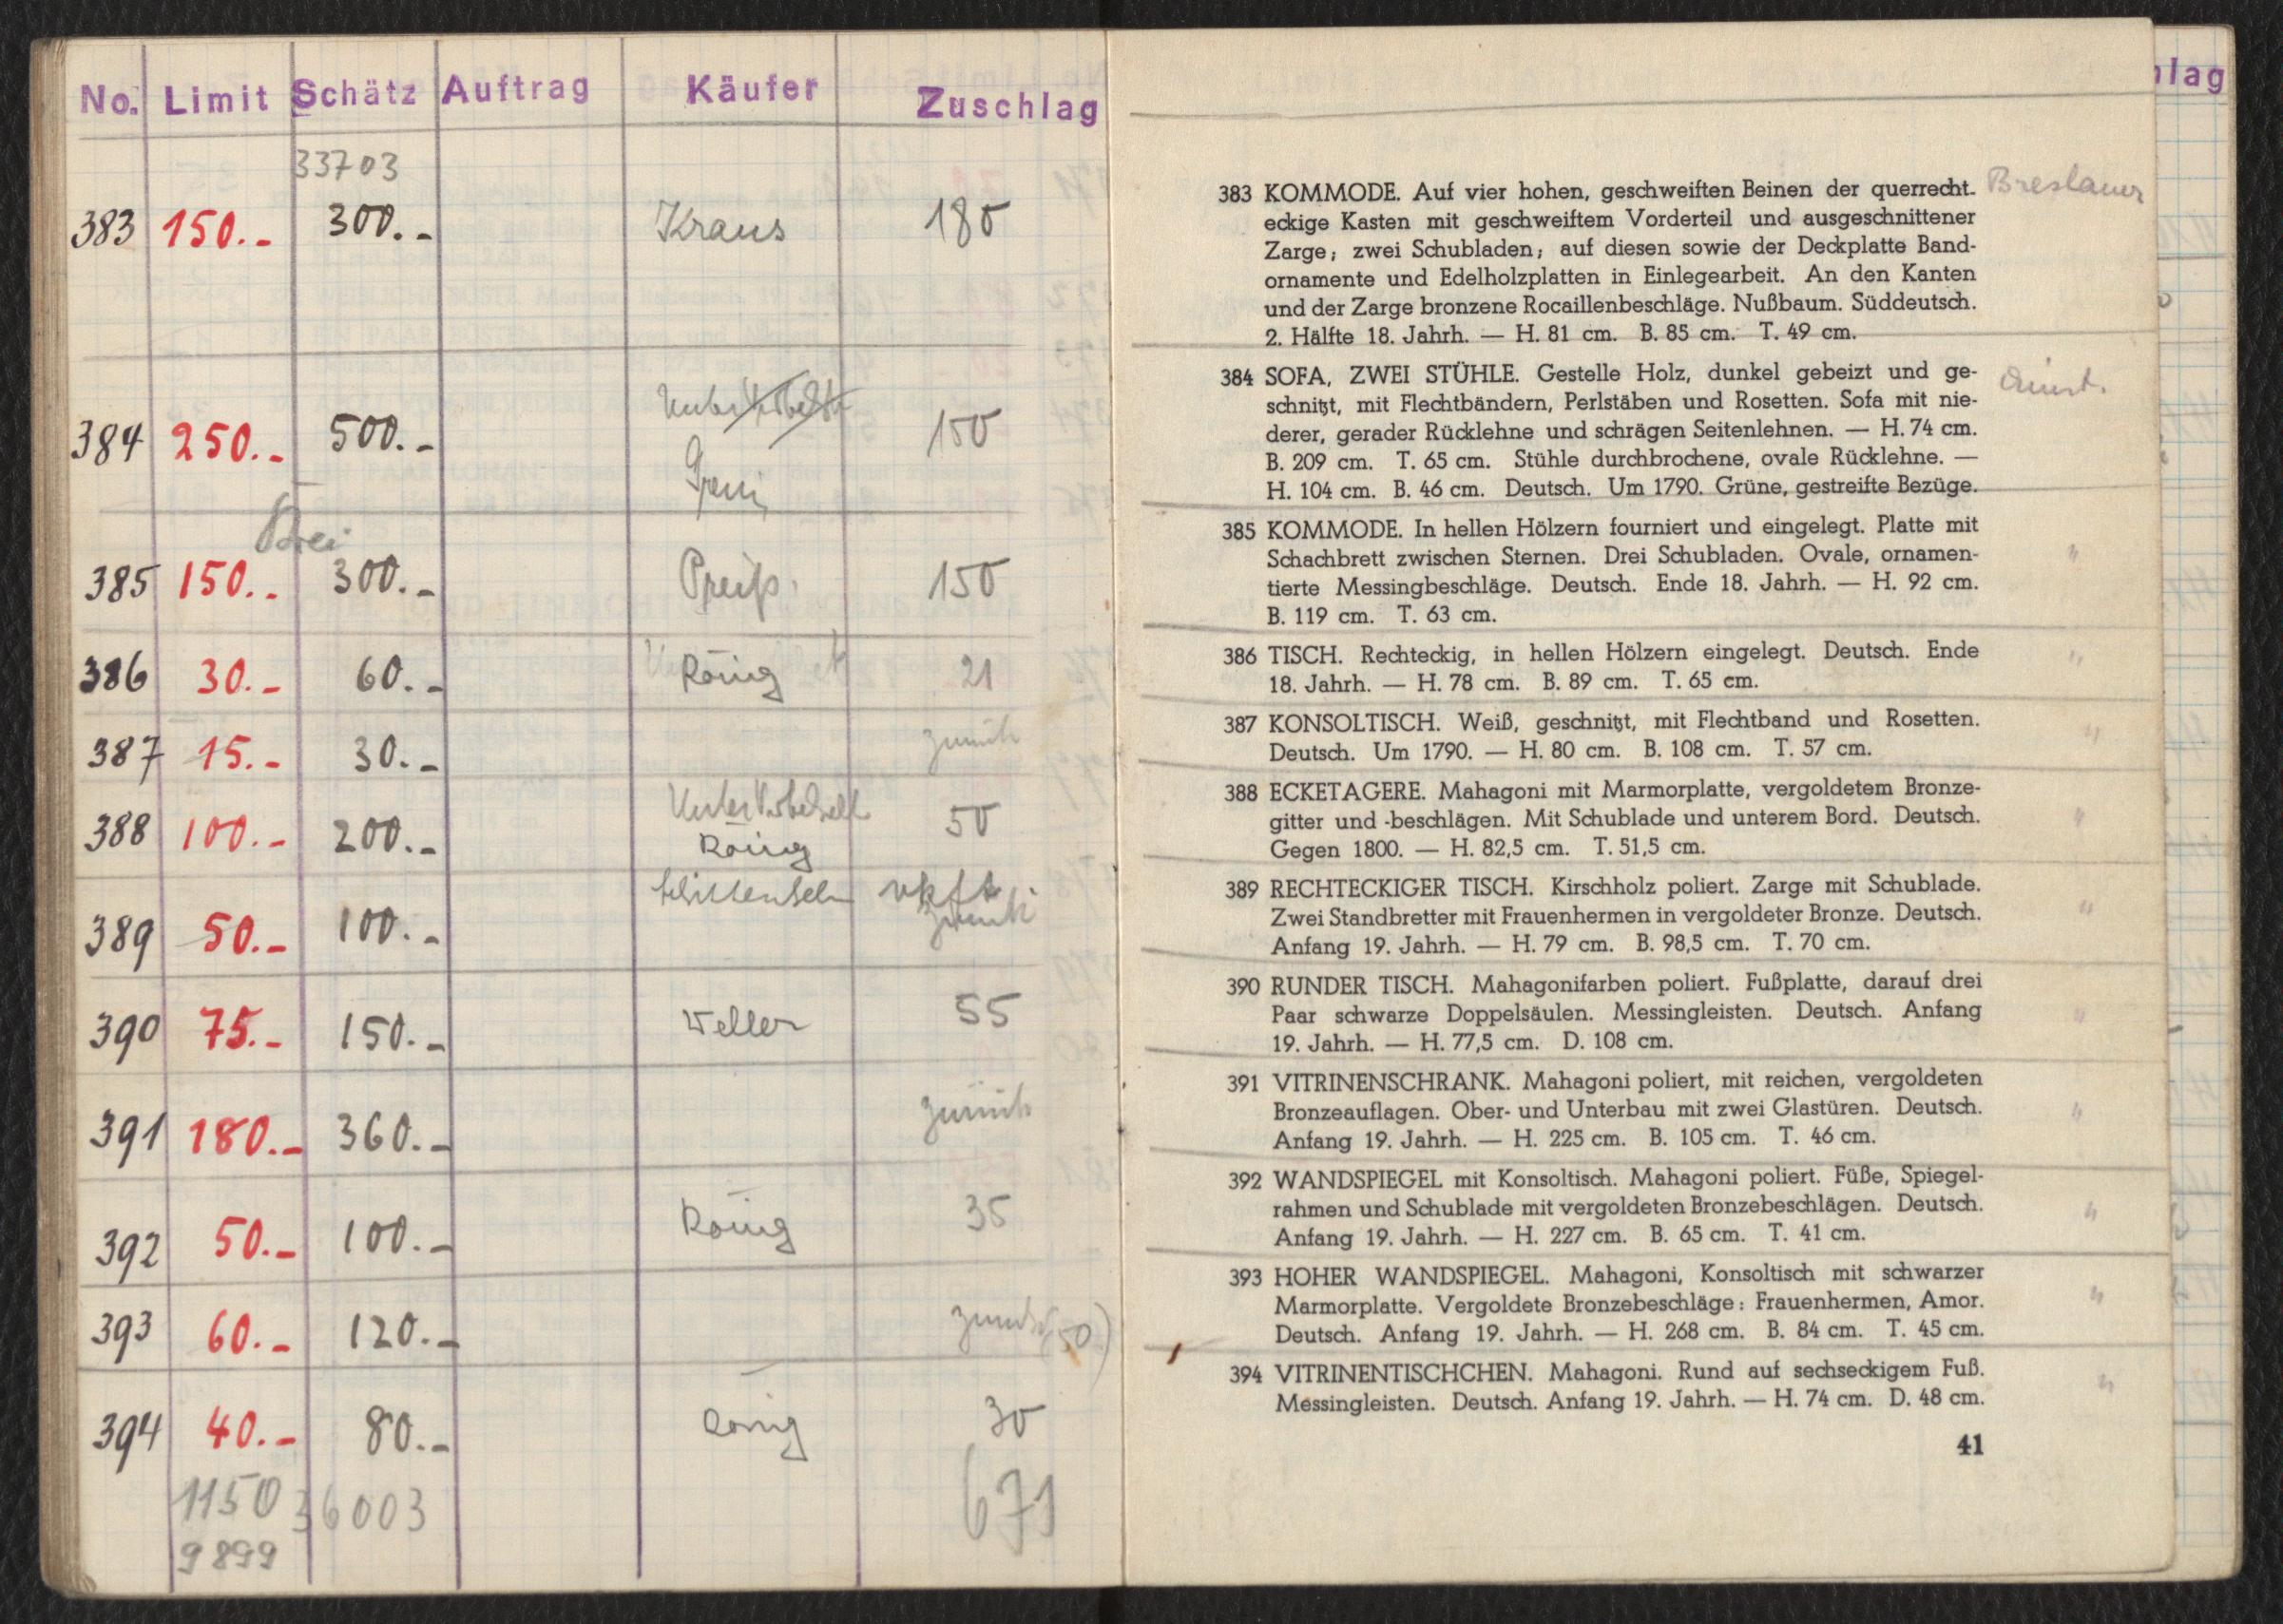 No. Limit Schätz Auftrag Käufer Zuschlag
33703
383 150.- 300.- Kraus 180
384 250.- 500.- 150
385 150.- 300.- Preiß. 150
386 30.- 60.- König 21
387 15.- 30.- zurück
388 100.- 200.- Unter Vorbehalt 50
König
389 50.- 100.- vkft
zurück
390 75.- 150.- Weller 55
391 180.- 360.- zurück
392 50.- 100.- König 35
393 60.- 120.- zurück (50)
394 40.- 80.- König 30
1150 36003 671
9899
hlag
383 KOMMODE. Auf vier hohen, geschweiften Beinen der querrecht- Breslauer
eckige Kasten mit geschweiftem Vorderteil und ausgeschnittener
Zarge; zwei Schubladen; auf diesen sowie der Deckplatte Band-
ornamente und Edelholzplatten in Einlegearbeit. An den Kanten
und der Zarge bronzene Rocaillenbeschläge. Nußbaum. Süddeutsch.
2. Hälfte 18. Jahrh. — H. 81 cm. B. 85 cm. T. 49 cm.
384 SOFA, ZWEI STÜHLE. Gestelle Holz, dunkel gebeizt und ge-
schnitzt, mit Flechtbändern, Perlstäben und Rosetten. Sofa mit nie-
derer, gerader Rücklehne und schrägen Seitenlehnen. — H. 74 cm.
B. 209 cm. T. 65 cm. Stühle durchbrochene, ovale Rücklehne. —
H. 104 cm. B. 46 cm. Deutsch. Um 1790. Grüne, gestreifte Bezüge.
385 KOMMODE. In hellen Hölzern fourniert und eingelegt. Platte mit
Schachbrett zwischen Sternen. Drei Schubladen. Ovale, ornamen- "
tierte Messingbeschläge. Deutsch. Ende 18. Jahrh. — H. 92 cm.
B. 119 cm. T. 63 cm.
386 TISCH. Rechteckig, in hellen Hölzern eingelegt. Deutsch. Ende "
18. Jahrh. — H. 78 cm. B. 89 cm. T. 65 cm.
387 KONSOLTISCH. Weiß, geschnitzt, mit Flechtband und Rosetten. "
Deutsch. Um 1790. — H. 80 cm. B. 108 cm. T. 57 cm.
388 ECKETAGERE. Mahagoni mit Marmorplatte, vergoldetem Bronze-
gitter und -beschlägen. Mit Schublade und unterem Bord. Deutsch. "
Gegen 1800. — H. 82,5 cm. T. 51,5 cm.
389 RECHTECKIGER TISCH. Kirschholz poliert. Zarge mit Schublade.
Zwei Standbretter mit Frauenhermen in vergoldeter Bronze. Deutsch. "
Anfang 19. Jahrh. — H. 79 cm. B. 98,5 cm. T. 70 cm.
390 RUNDER TISCH. Mahagonifarben poliert. Fußplatte, darauf drei
Paar schwarze Doppelsäulen. Messingleisten. Deutsch. Anfang "
19. Jahrh. — H. 77,5 cm. D. 108 cm.
391 VITRINENSCHRANK. Mahagoni poliert, mit reichen, vergoldeten
Bronzeauflagen. Ober- und Unterbau mit zwei Glastüren. Deutsch. "
Anfang 19. Jahrh. — H. 225 cm. B. 105 cm. T. 46 cm.
392 WANDSPIEGEL mit Konsoltisch. Mahagoni poliert. Füße, Spiegel-
rahmen und Schublade mit vergoldeten Bronzebeschlägen. Deutsch. "
Anfang 19. Jahrh. — H. 227 cm. B. 65 cm. T. 41 cm.
393 HOHER WANDSPIEGEL. Mahagoni, Konsoltisch mit schwarzer
Marmorplatte. Vergoldete Bronzebeschläge: Frauenhermen, Amor. "
Deutsch. Anfang 19. Jahrh. — H. 268 cm. B. 84 cm. T. 45 cm.
394 VITRINENTISCHCHEN. Mahagoni. Rund auf sechseckigem Fuß. "
Messingleisten. Deutsch. Anfang 19. Jahrh. — H. 74 cm. D. 48 cm.
41